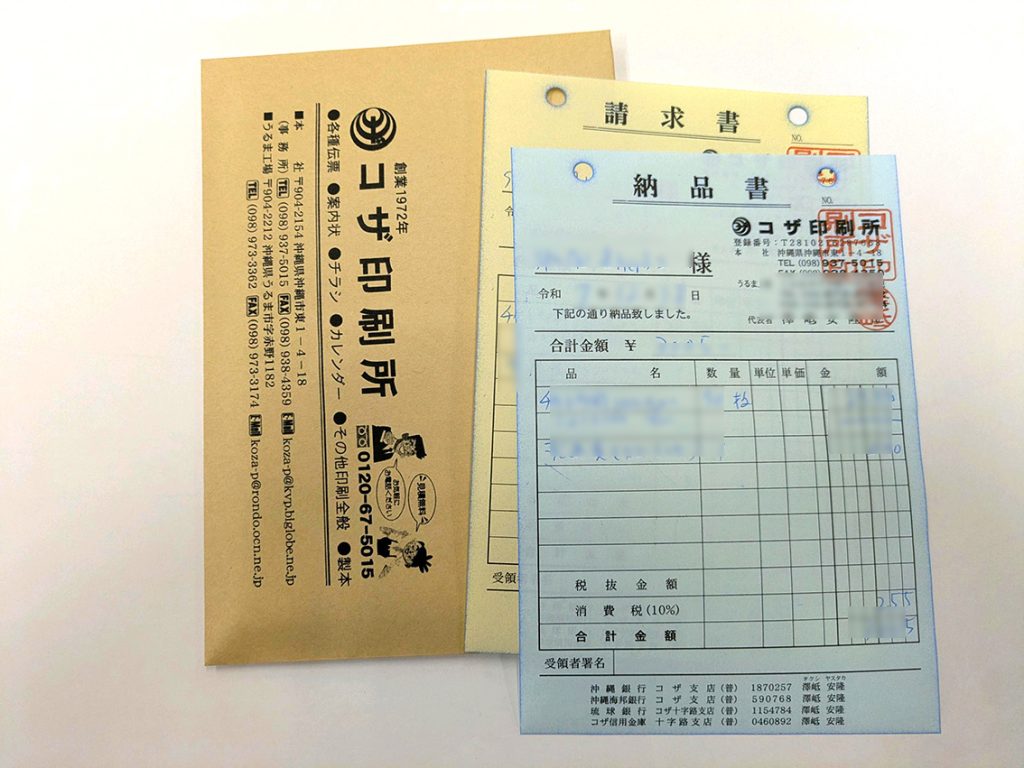 創業1972年
コザ印刷所
●各種伝票 ●案内状 ●チラシ ●カレンダー ●その他印刷全般 ●製本
■本 社 〒904-2154 沖縄県沖縄市東1-4-18
(事務所) TEL (098) 937-5015 FAX (098) 938-4359 E-Mail koza-p@kvp.biglobe.ne.jp
■うるま工場 〒904-2212 沖縄県うるま市字赤野1182
TEL (098) 973-3362 FAX (098) 973-3174 E-Mail koza-p@rondo.ocn.ne.jp
0120-67-5015
見積無料
お気軽に
お電話ください
請求書
NO.
令
受領者
納品書
NO.
コザ印刷所
登録番号:T28102
本 社 沖縄県沖縄市東1-4-18
TEL (098) 937-5015
様
うるま
令和 日
代表者 澤岻 安隆
下記の通り納品致しました。
合計金額 ¥
品名 数量 単位 単価 金額
枚
税抜金額
消費税(10%) 255
合計金額 5
受領者署名
タクシ ヤスタカ
沖縄銀行 コザ支店(普) 1870257 澤岻 安隆
沖縄海邦銀行 コザ支店(普) 590768 澤岻 安隆
琉球銀行 コザ十字路支店(普) 1154784 澤岻 安隆
コザ信用金庫 十字路支店(普) 0460892 澤岻 安隆